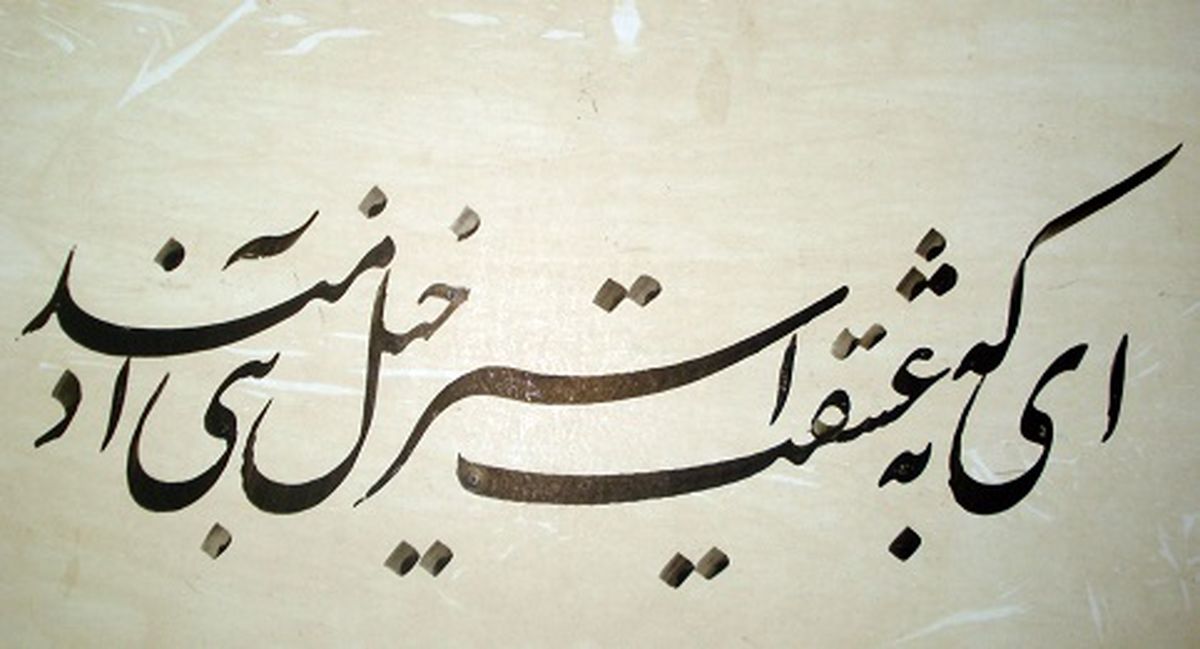 ای که به عشقت اسیر خیل بنی آدمند